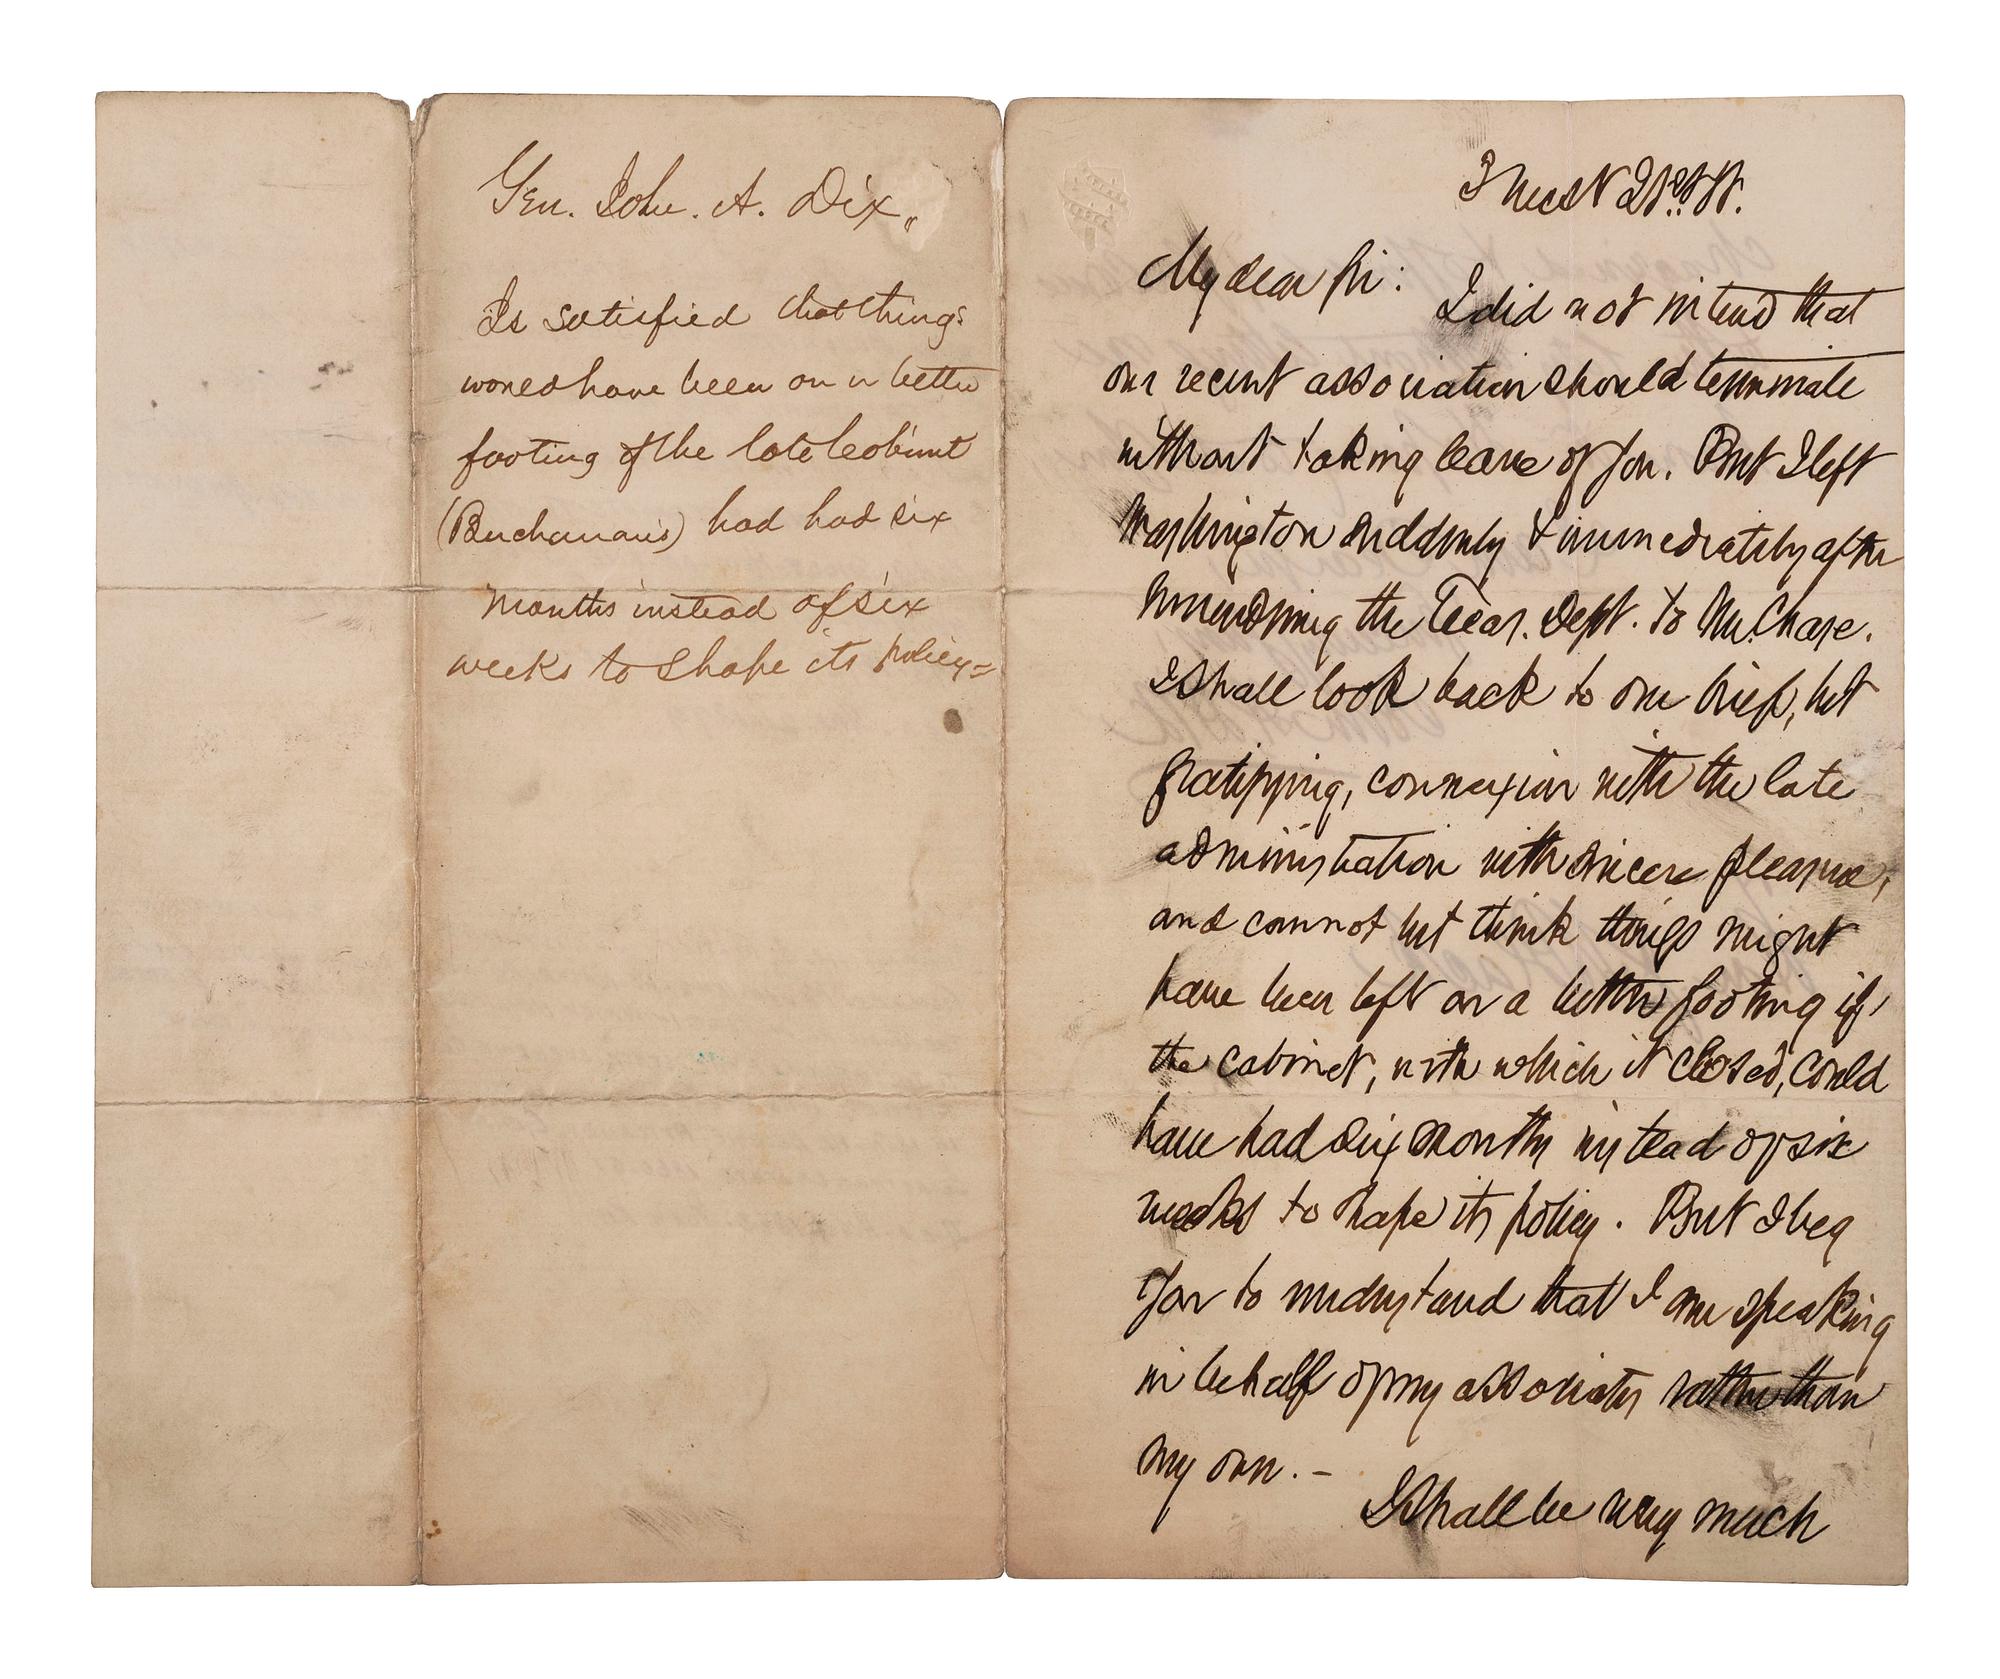 Gen. John. A. Dix,,
Is satisfied that things
would have been on a better
footing if the late Cabinet
(Buchanan's) had had six
months instead of six
weeks to shape its policy=
3 West 21st St.
My dear Sir:
I did not intend that
our recent association should terminate
without taking leave of you. But I left
Washington suddenly & immediately after
surrendering the Treas. Dept. to Mr. Chase.
I shall look back to our brief, but
gratifying, connexion with the late
administration with sincere pleasure,
and cannot but think things might
have been left on a better footing if,
the cabinet, with which it closed, could
have had six months instead of six
weeks to shape its policy. But I beg
you to understand that I am speaking
in behalf of my associates rather than
my own. –
I shall be very much